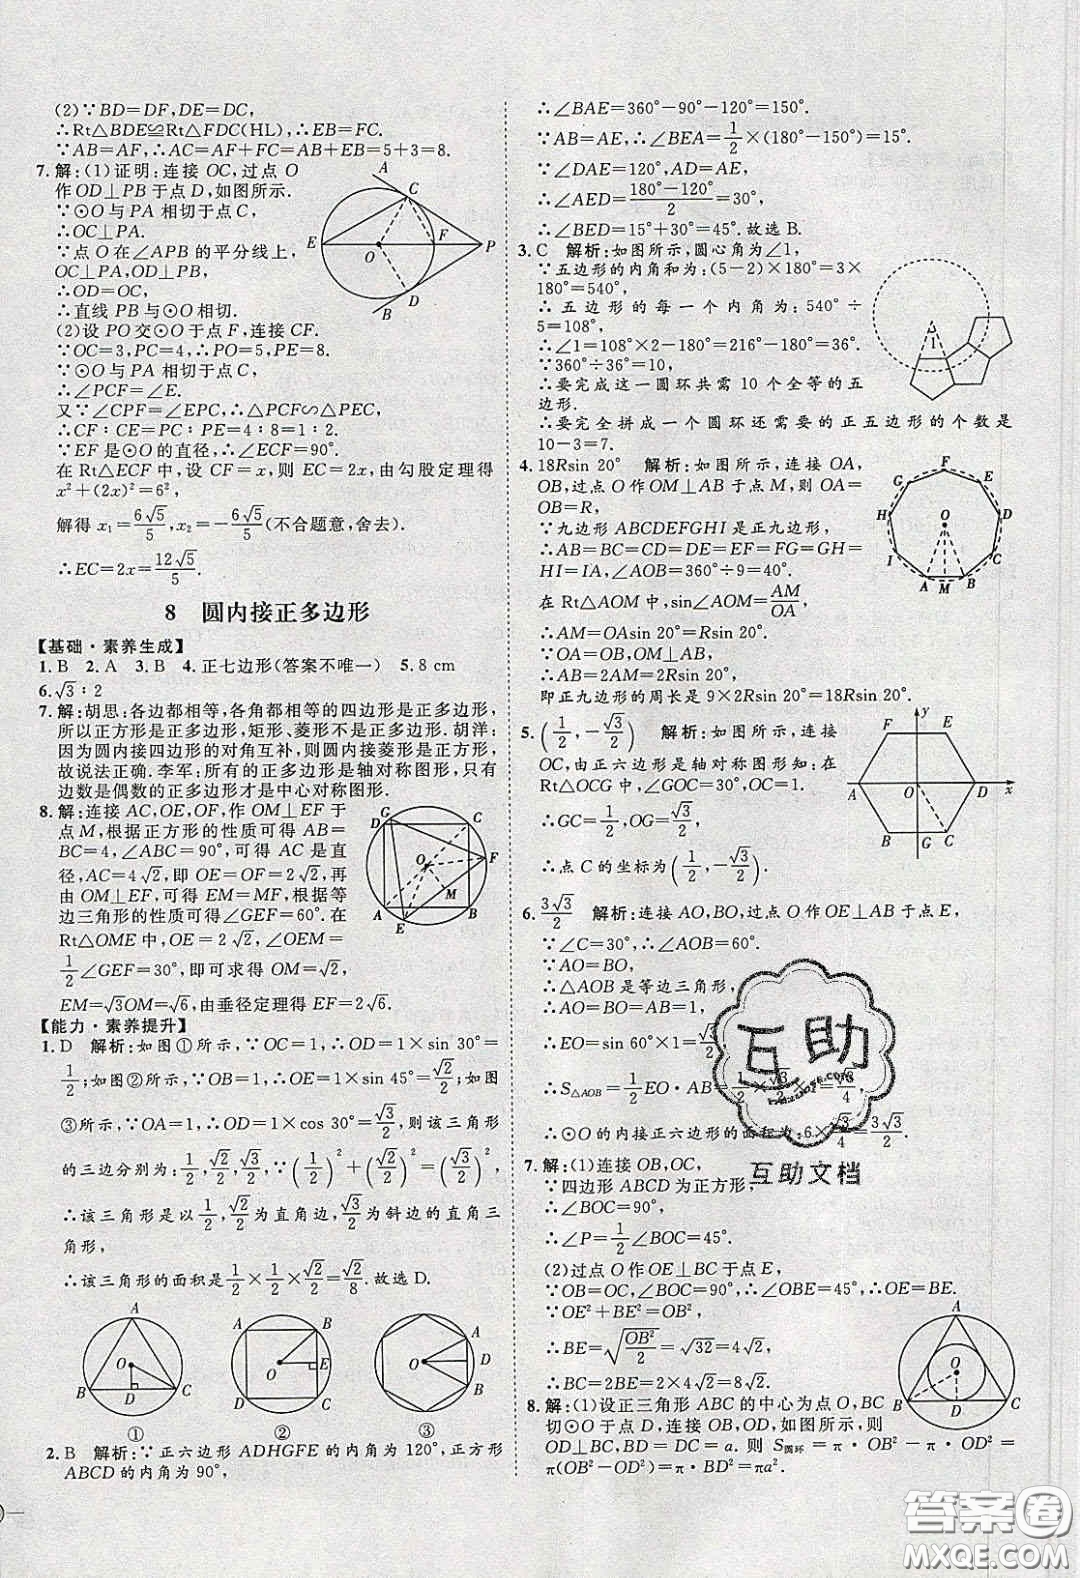 (2)∵BD=DF,DE=DC,
∴Rt△BDE≌Rt△FDC(HL),∴EB=FC.
∵AB=AF,∴AC=AF+FC=AB+EB=5+3=8.
7.解:(1)证明:连接OC,过点O
作OD⊥PB于点D,如图所示.
∵⊙O与PA相切于点C,
∴OC⊥PA.
∵点O在∠APB的平分线上,
OC⊥PA,OD⊥PB,
∴OD=OC,
∴直线PB与⊙O相切.
(2)设PO交⊙O于点F,连接CF.
∵OC=3,PC=4,∴PO=5,PE=8.
∵⊙O与PA相切于点C,
∴∠PCF=∠E.
又∵∠CPF=∠EPC,∴△PCF∽△PEC,
∴CF∶CE=PC∶PE=4∶8=1∶2.
∵EF是⊙O的直径,∴∠ECF=90°.
在Rt△ECF中,设CF=x,则EC=2x,由勾股定理得
x²+(2x)²=6²,
解得x₁=6√5/5,x₂=-6√5/5(不合题意,舍去).
∴EC=2x=12√5/5.
A
C
E
O
F
P
D
B
8 圆内接正多边形
【基础·素养生成】
1.B 2.A 3.B 4.正七边形(答案不唯一) 5.8 cm
6.√3∶2
7.解:胡思:各边都相等,各角都相等的四边形是正多边形,
所以正方形是正多边形,矩形、菱形不是正多边形.胡洋:
因为圆内接四边形的对角互补,则圆内接菱形是正方形,
故说法正确.李军:所有的正多边形是轴对称图形,只有
边数是偶数的正多边形才是中心对称图形.
8.解:连接AC,OE,OF,作OM⊥EF于
点M,根据正方形的性质可得AB=
BC=4,∠ABC=90°,可得AC是直
径,AC=4√2,即OE=OF=2√2,再
由OM⊥EF,可得EM=MF,根据等
边三角形的性质可得∠GEF=60°.在
Rt△OME中,OE=2√2,∠OEM=
1/2∠GEF=30°,即可求得OM=√2,
EM=√3OM=√6,由垂径定理得EF=2√6.
G
D
C
F
O
M
A
E
B
【能力·素养提升】
1.D 解析:如图①所示,∵OC=1,∴OD=1×sin 30°=
1/2;如图②所示,∵OB=1,∴OE=1×sin 45°=√2/2;如图
③所示,∵OA=1,∴OD=1×cos 30°=√3/2,则该三角形
的三边分别为:1/2,√2/2,√3/2,∵(1/2)²+(√2/2)²=(√3/2)²,
∴该三角形是以1/2,√2/2为直角边,√3/2为斜边的直角三
角形,
∴该三角形的面积是1/2×1/2×√2/2=√2/8.故选D.
A
O
B
D
C
①
A
B
E
O
C
②
A
O
D
B
③
2.B 解析:∵正六边形ADHGFE的内角为120°,正方形
ABCD的内角为90°,
∴∠BAE=360°-90°-120°=150°.
∵AB=AE,∴∠BEA=1/2×(180°-150°)=15°.
∵∠DAE=120°,AD=AE,
∴∠AED=180°-120°/2=30°,
∴∠BED=15°+30°=45°.故选B.
3.C 解析:如图所示,圆心角为∠1,
∵五边形的内角和为:(5-2)×180°=3×
180°=540°,
∴五边形的每一个内角为:540°÷
5=108°,
∴∠1=108°×2-180°=216°-180°=36°.
∵360°÷36°=10,
∴要完成这一圆环共需10个全等的五
边形.
∴要完全拼成一个圆环还需要的正五边形的个数是
10-3=7.
1
4.18Rsin 20° 解析:如图所示,连接OA,
OB,过点O作OM⊥AB于点M,则OA=
OB=R,
∵九边形ABCDEFGHI是正九边形,
∴AB=BC=CD=DE=EF=FG=GH=
HI=IA,∠AOB=360°÷9=40°.
在Rt△AOM中,sin∠AOM=AM/OA,
∴AM=OAsin 20°=Rsin 20°.
∵OA=OB,OM⊥AB,
∴AB=2AM=2Rsin 20°.
即正九边形的周长是9×2Rsin 20°=18Rsin 20°.
F
G
E
H
D
O
I
C
A
M
B
5.(1/2,-√3/2) 解析:如图所示,连接
OC,由正六边形是轴对称图形知:在
Rt△OCG中,∠GOC=30°,
∴GC=1/2,OG=√3/2,
∴点C的坐标为(1/2,-√3/2).
y
F
E
A
O
D
x
B
G
C
6.3√3/2 解析:连接AO,BO,过点O作OE⊥AB于点E,
∵∠C=30°,∴∠AOB=60°.
∵AO=BO,
∴△AOB是等边三角形,
∴AO=BO=AB=1,
∴EO=sin 60°×1=√3/2,
∴S△AOB=1/2EO·AB=1/2×√3/2×1=√3/4,
∴⊙O的内接正六边形的面积为:6×√3/4=3√3/2.
7.解:(1)连接OB,OC,
∵四边形ABCD为正方形,
∴∠BOC=90°,
∴∠P=1/2∠BOC=45°.
(2)过点O作OE⊥BC于点E,
∵OB=OC,∠BOC=90°,∴∠OBE=45°,∴OE=BE.
∵OE²+BE²=OB²,
∴BE=√OB²/2=√32=4√2,
∴BC=2BE=2×4√2=8√2.
8.解:(1)设正三角形ABC的中心为点O,BC
切⊙O于点D,连接OB,OD,如图所示,则
OD⊥BC,BD=DC=a.则S圆环=π·OB²-π·OD²=
π(OB²-OD²)=π·BD²=πa².
A
O
B
D
C
互助
互助文档
答案圈
MXQE.COM